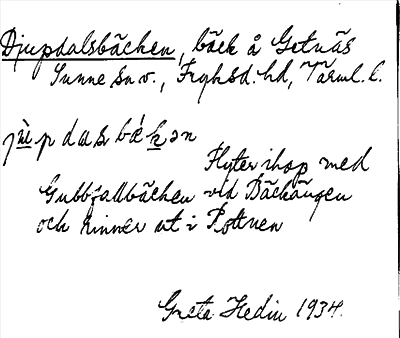 Djupdalsbäcken, bäck å Getnäs
Sunne sn v., Fryksd. hd, Värml. l.
Flyter ihop med
Gubbfallbäcken vid Bäckängen
och rinner ut i Rottnen
Greta Hedin 1934.